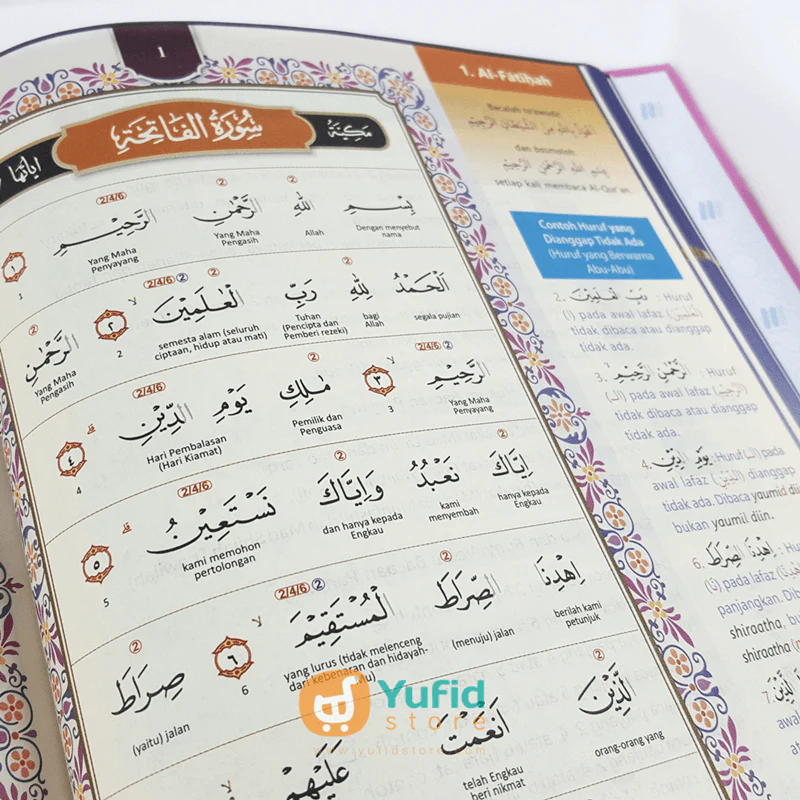 1
سُورَةُ الْفَاتِحَةِ
مَكِّيَّةٌ
اياتها
2/4/6 2 2
بِسْمِ اللّٰهِ الرَّحْمٰنِ الرَّحِيْمِ ١
Dengan menyebut nama
Allah
Yang Maha Pengasih
Yang Maha Penyayang
1
2/4/6 2 2 2
اَلْحَمْدُ لِلّٰهِ رَبِّ الْعٰلَمِيْنَ ۙ ٢
segala pujian
bagi Allah
Tuhan (Pencipta dan Pemberi rezeki)
semesta alam (seluruh ciptaan, hidup atau mati)
2
2
الرَّحْمٰنِ
Yang Maha Pengasih
2/4/6 2
الرَّحِيْمِ ۙ ٣
Yang Maha Penyayang
3
2 2/4/6
مٰلِكِ يَوْمِ الدِّيْنِ ۗ ٤
Pemilik dan Penguasa
Hari Pembalasan (Hari Kiamat)
4
2 2 2/4/6
اِيَّاكَ نَعْبُدُ وَاِيَّاكَ نَسْتَعِيْنُ ۗ ٥
hanya kepada Engkau
kami menyembah
dan hanya kepada Engkau
kami memohon pertolongan
5
2 2/4/6 2
اِهْدِنَا الصِّرَاطَ الْمُسْتَقِيْمَ ۙ ٦
berilah kami petunjuk
(menuju) jalan
yang lurus (tidak melenceng
dari kebenaran dan hidayah-
6
2
صِرَاطَ
(yaitu) jalan
2
الَّذِيْنَ اَنْعَمْتَ عَلَيْهِمْ
orang-orang yang
telah Engkau beri nikmat
Yufid
store
www.yufidstore.com
1. Al-Fātiḥah
Bacalah ta'awudz:
اَعُوْذُ بِاللّٰهِ مِنَ الشَّيْطَانِ الرَّجِيْمِ
dan basmalah
بِسْمِ اللّٰهِ الرَّحْمٰنِ الرَّحِيْمِ
setiap kali membaca Al-Qur'an.
Contoh Huruf yang
Dianggap Tidak Ada
(Huruf yang Berwarna
Abu-Abu)
2. رَبِّ الْعٰلَمِيْنَ : Huruf
(ا) pada awal lafaz (الْعٰلَمِيْنَ)
tidak dibaca atau dianggap
tidak ada.
3. الرَّحْمٰنِ الرَّحِيْمِ : Huruf
(ال) pada awal lafaz (الرَّحِيْمِ)
tidak dibaca atau dianggap
tidak ada.
4. يَوْمِ الدِّيْنِ : Huruf (ال) pada
awal lafaz (الدِّيْنِ) dianggap
tidak ada. Dibaca yaumid diin
bukan yaumil diin.
6. اِهْدِنَا الصِّرَاطَ : Hu
(ا) pada lafaz
panjangkan. Diba
shiraatha, bu
shiraatha
7. الَّذِيْنَ
awal
atau